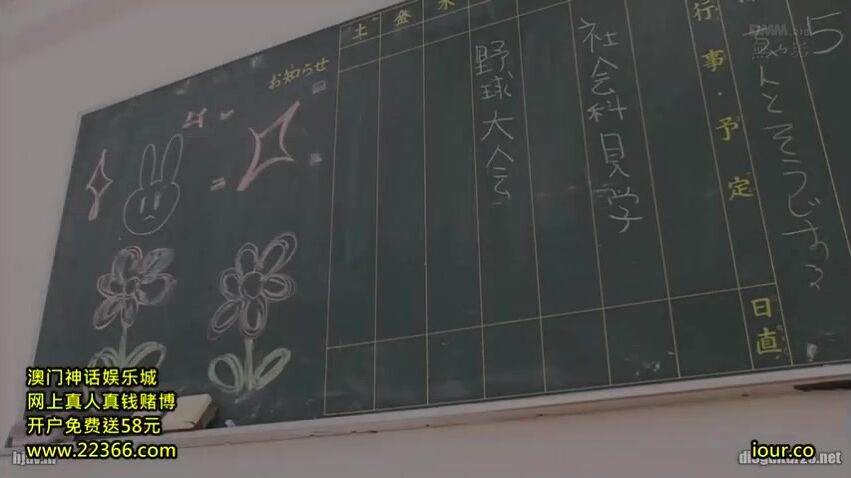 お知らせ
土
金
木
野球大会
社会科見学
行事・予定
日直
5
澳门神话娱乐城
网上真人真钱赌博
开户免费送58元
www.22366.com
iour.co